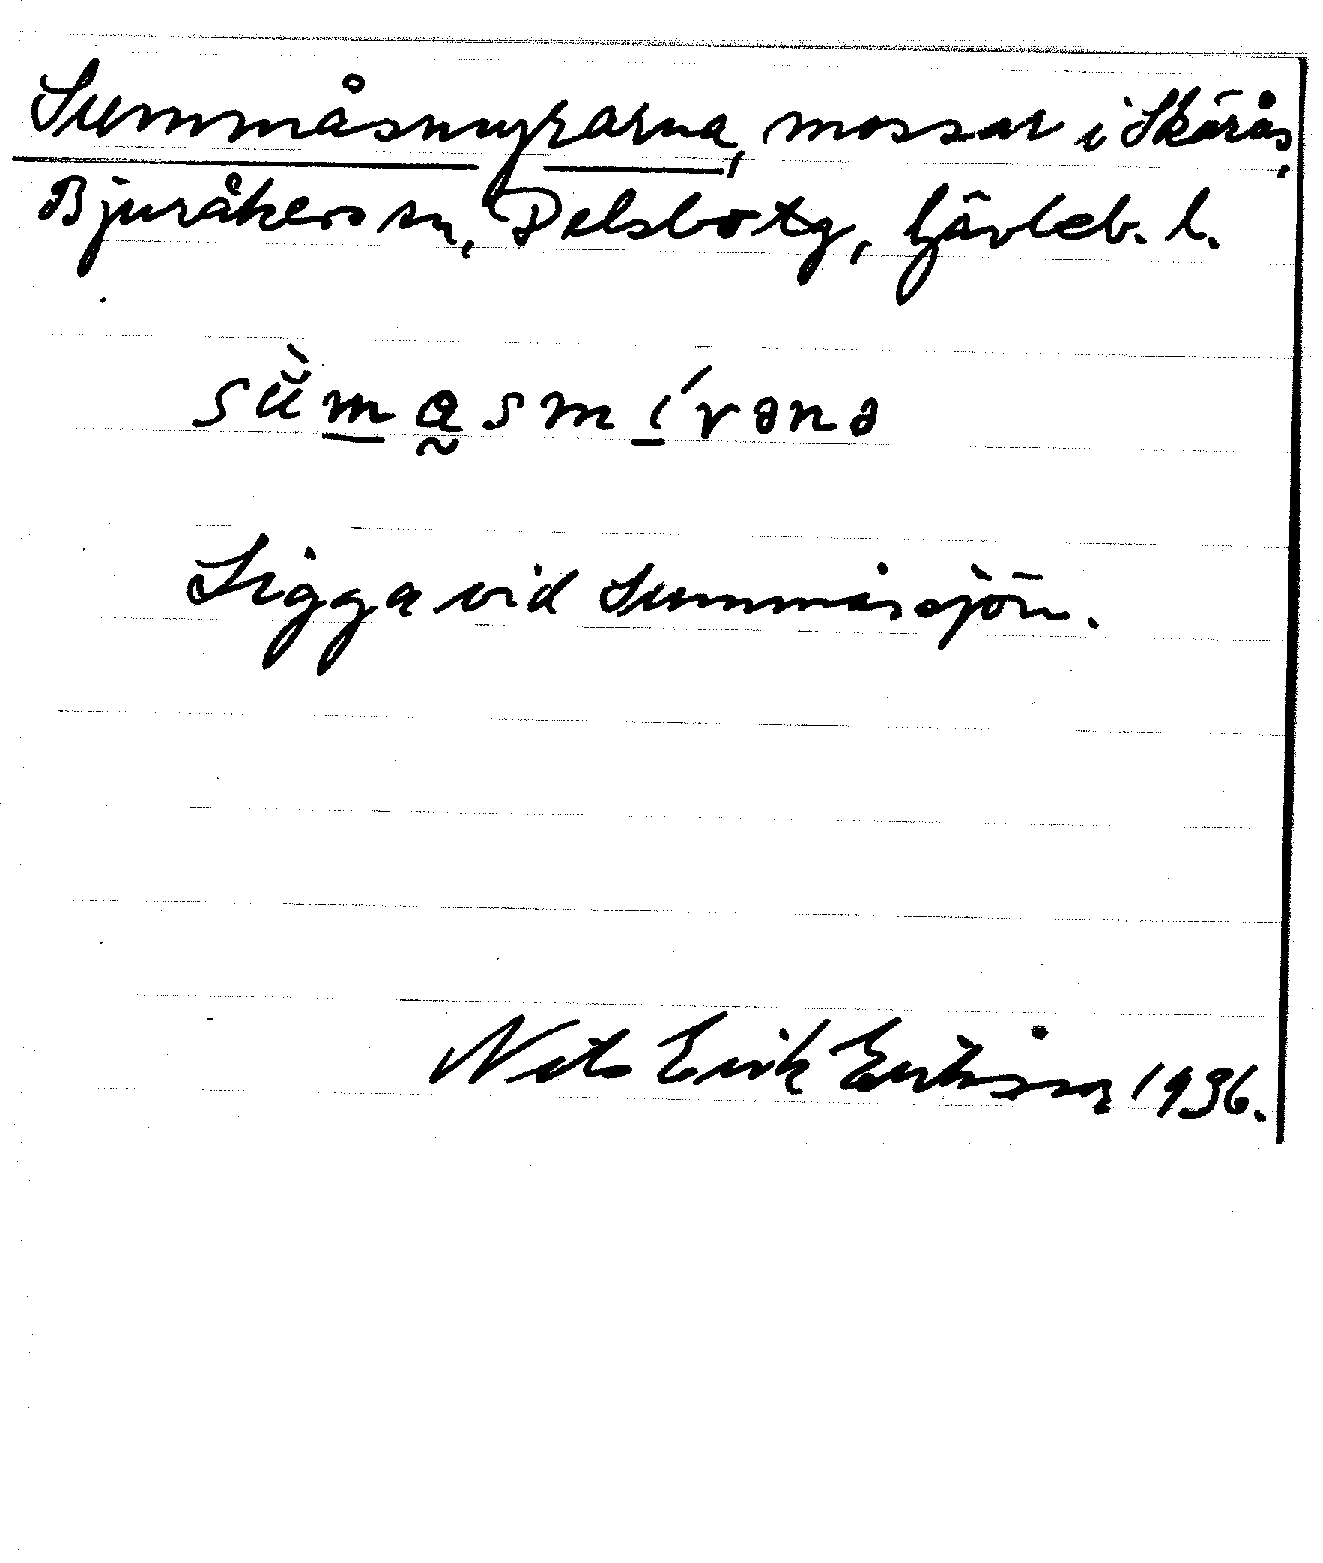 Summåsmyrarna, mossar i Skärås,
Bjuråkers sn, Delsbo tg, Gävleb. l.
sŭ̀m̲a̰smí̲rənə
Ligga vid Summåssjön.
Nils Erik Eriksson 1936.